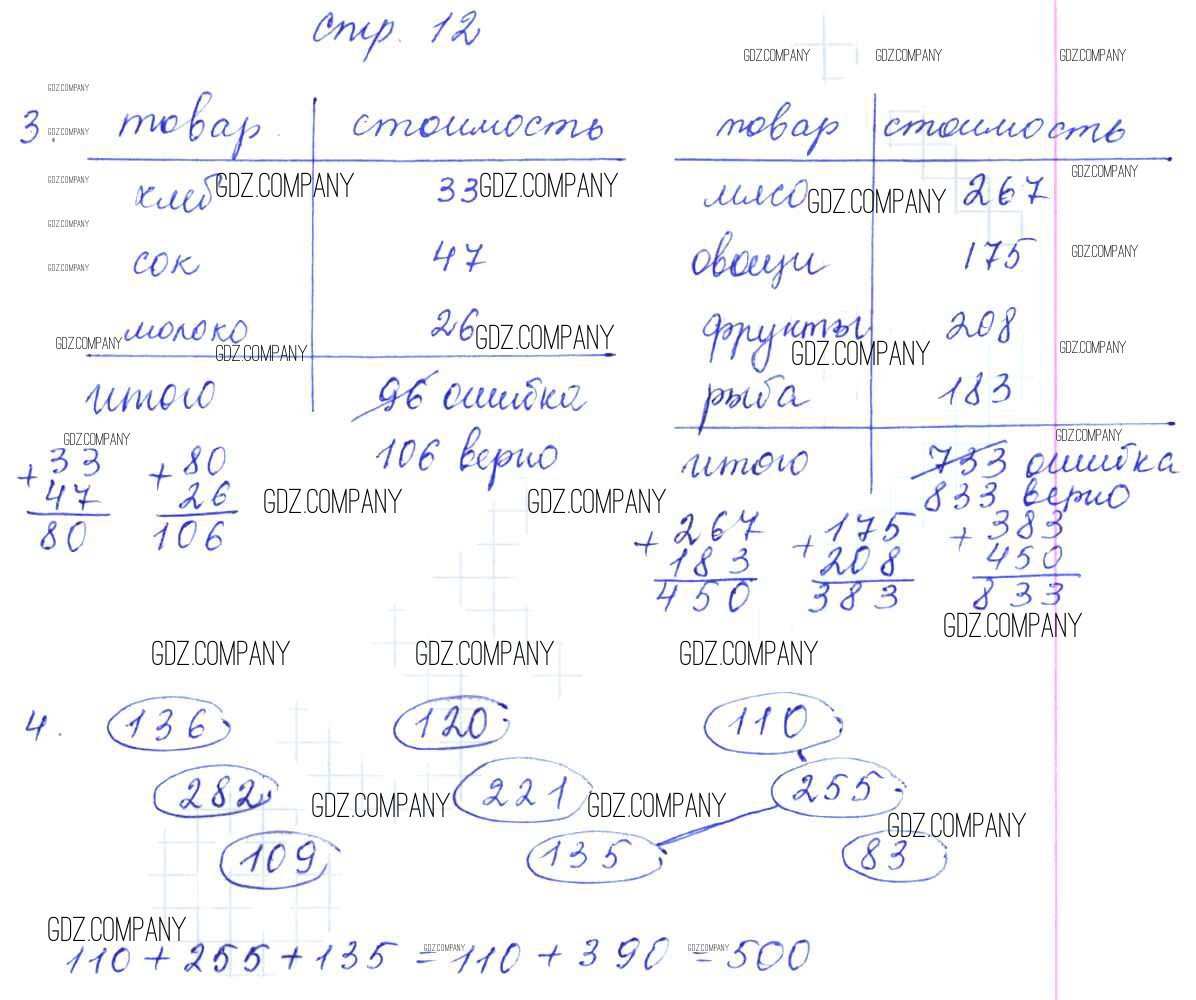 стр. 12
GDZ.COMPANY GDZ.COMPANY GDZ.COMPANY
GDZ.COMPANY
3. товар стоимость товар стоимость
GDZ.COMPANY
хлеб 33 мясо 267
GDZ.COMPANY GDZ.COMPANY GDZ.COMPANY GDZ.COMPANY GDZ.COMPANY
GDZ.COMPANY
сок 47 овощи 175
GDZ.COMPANY GDZ.COMPANY
молоко 26 фрукты 208
GDZ.COMPANY GDZ.COMPANY GDZ.COMPANY GDZ.COMPANY GDZ.COMPANY
итого 96 ошибка рыба 183
106 верно итого 733 ошибка
833 верно
GDZ.COMPANY GDZ.COMPANY
+ 33 + 80
47 26
80 106
GDZ.COMPANY GDZ.COMPANY
+ 267 + 175 + 383
183 208 450
450 383 833
GDZ.COMPANY
GDZ.COMPANY GDZ.COMPANY GDZ.COMPANY
4. 136 120 110
282 221 255
GDZ.COMPANY GDZ.COMPANY GDZ.COMPANY
109 135 83
GDZ.COMPANY
110 + 255 + 135 = 110 + 390 = 500
GDZ.COMPANY GDZ.COMPANY